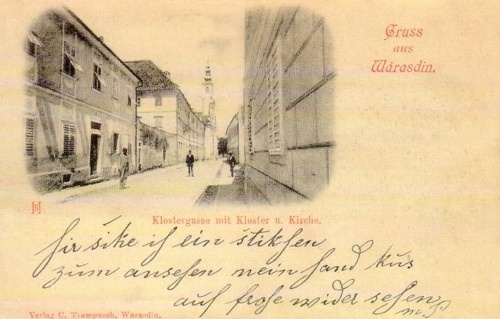 Gruss
aus
Wárasdin.
Klostergasse mit Kloster u. Kirche.
šike ein
zum ansehen hand kus
auf frohe wider sehen
Verlag C. Trampusch, Warasdin.